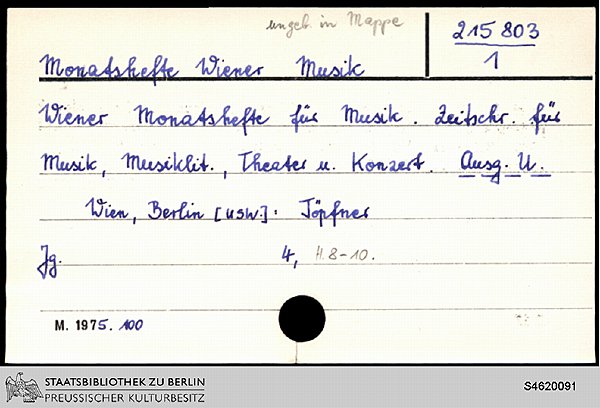 ungeb. in Mappe
215 803
1
Monatshefte Wiener Musik
Wiener Monatshefte für Musik. Zeitschr. für
Musik, Musiklit., Theater u. Konzert. Ausg. U.
Wien, Berlin [usw.]: Töpfner
Jg. 4, H. 8-10.
M. 1975. 100
STAATSBIBLIOTHEK ZU BERLIN
PREUSSISCHER KULTURBESITZ
S4620091